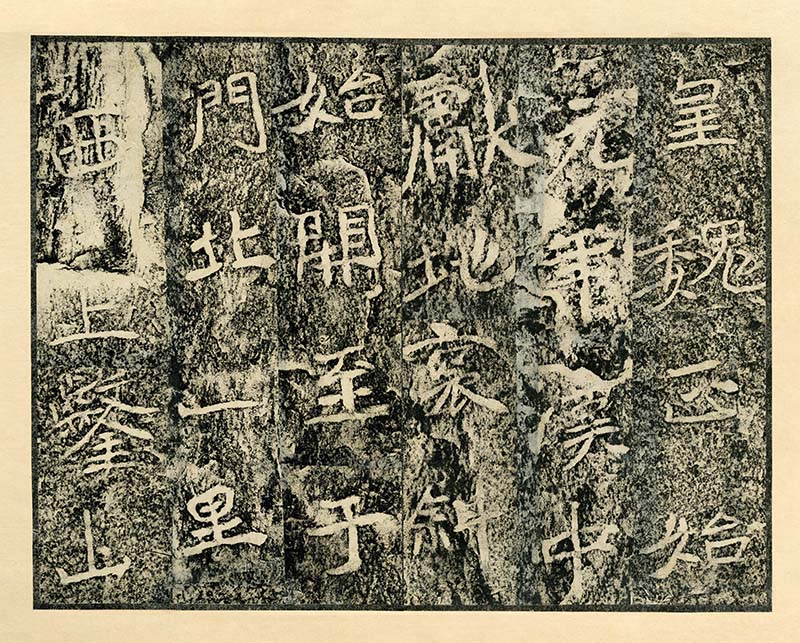 皇魏正始
元年漢中
獻地褒斜
始開至于
門北一里
西上鑿山